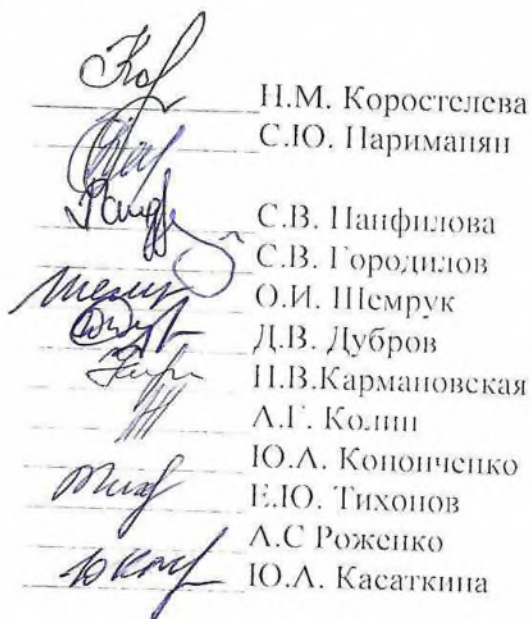 Н.М. Коростелева
С.Ю. Нариманян
С.В. Панфилова
С.В. Городилов
О.И. Шемрук
Д.В. Дубров
Н.В.Кармановская
А.Г. Колин
Ю.А. Кононченко
Е.Ю. Тихонов
А.С Роженко
Ю.А. Касаткина